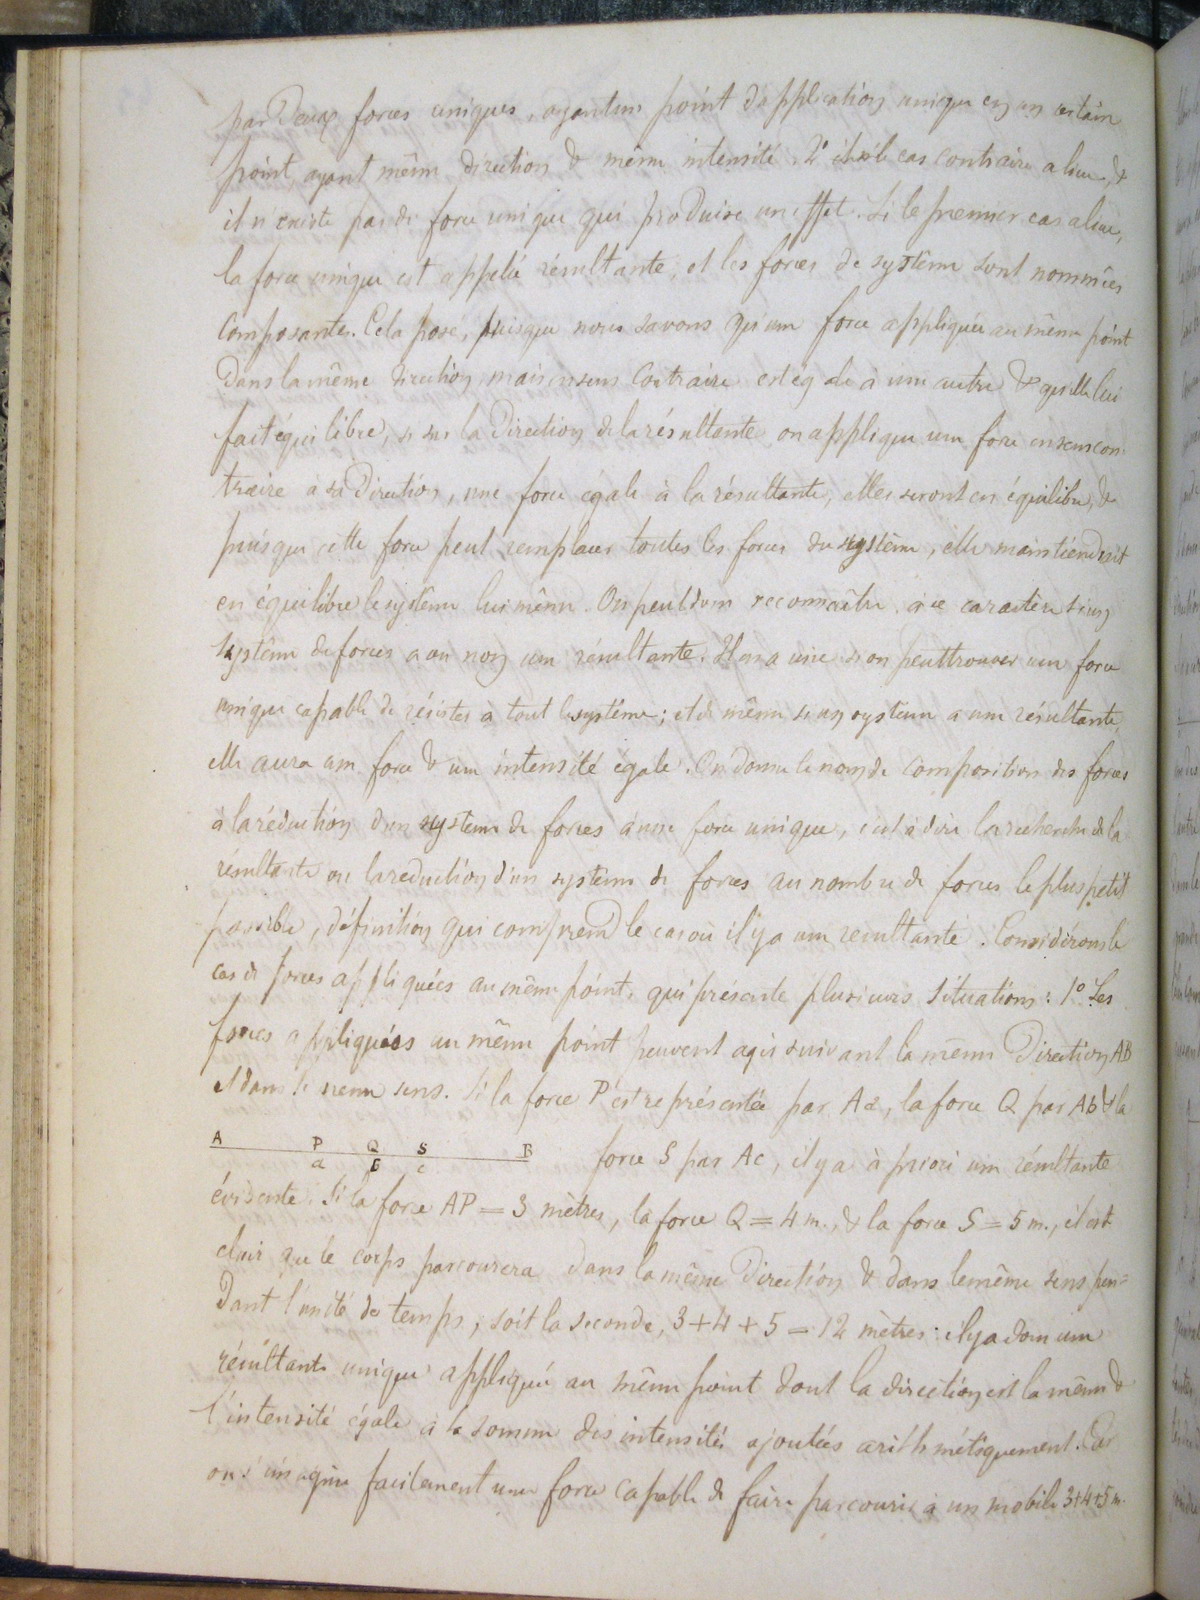 par Deux forces uniques, ayant un point d'application unique en un certain
point, ayant même direction & même intensité. 2° le cas contraire a lieu, &
il n'existe pas de force unique qui produise un effet. Si le premier cas a lieu,
la force unique est appelée résultante, et les forces de système sont nommées
Composantes. Cela posé, puisque nous savons qu'une force appliquée au même point
Dans la même direction, mais en sens Contraire est égale à une autre & qu'elle lui
fait équilibre, si sur la Direction de la résultante on applique une force en sens con-
traire à sa Direction, une force égale à la résultante, elles seront en équilibre, &
puisque cette force peut remplacer toutes les forces du système, elle maintiendrait
en équilibre le système lui même. On peut donc reconnaître à ce caractère si un
Système de forces a ou non une résultante. Il en a une si on peut trouver une force
unique capable de résister à tout le système; et de même si un système a une résultante,
elle aura une force & une intensité égale. On donne le nom de Composition des forces
à la réduction d'un système de forces à une force unique, c'est à dire la recherche de la
résultante ou la réduction d'un système de forces au nombre de forces le plus petit
possible, définition qui comprend le cas où il y a une résultante. Considérons le
cas de forces appliquées au même point, qui présente plusieurs Situations: 1° Les
forces appliquées au même point peuvent agir suivant la même Direction AB
et dans le même sens. Si la force P est représentée par Aa, la force Q par Ab & la
A P Q S B
a b c
force S par Ac, il y a à priori une résultante
évidente. Si la force AP = 3 mètres, la force Q = 4 m., & la force S = 5 m., il est
clair que le corps parcourera dans la même Direction & dans le même sens pen=
Dant l'unité de temps, soit la seconde, 3+4+5 = 12 mètres: il y a donc une
résultante unique appliquée au même point dont la direction est la même &
l'intensité égale à la somme des intensités ajoutées arithmétiquement. Car
on s'imagine facilement une force Capable de faire parcourir à un mobile 3+4+5 m.